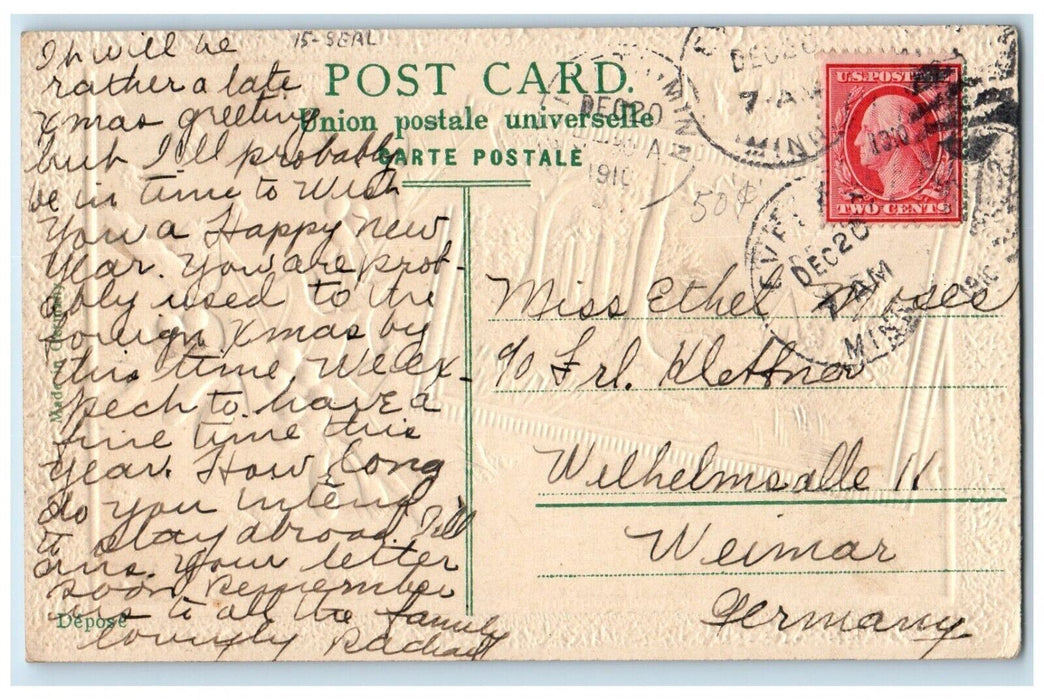 15-SEAL
POST CARD.
Union postale universelle
CARTE POSTALE
It will be
rather a late
Xmas greeting
but I'll probably
be in time to wish
you a Happy New
Year. You are prob-
ably used to the
foreign Xmas by
this time. We ex-
pect to have a
fine time this
year. How long
do you intend
to stay abroad. I'll
ans. your letter
soon. Remember
us to all the family
Lovingly Rachael
Made in Germany
Déposé
DEC 20
7 AM
MINN.
1910
DEC 20
MINN
1910
U.S. POSTAGE
TWO CENTS
50¢
DEC 20
7 AM
MINN
1910
Miss Ethel Moses
c/o Frl. Klettner
Wilhelmsalle 11
Weimar
Germany